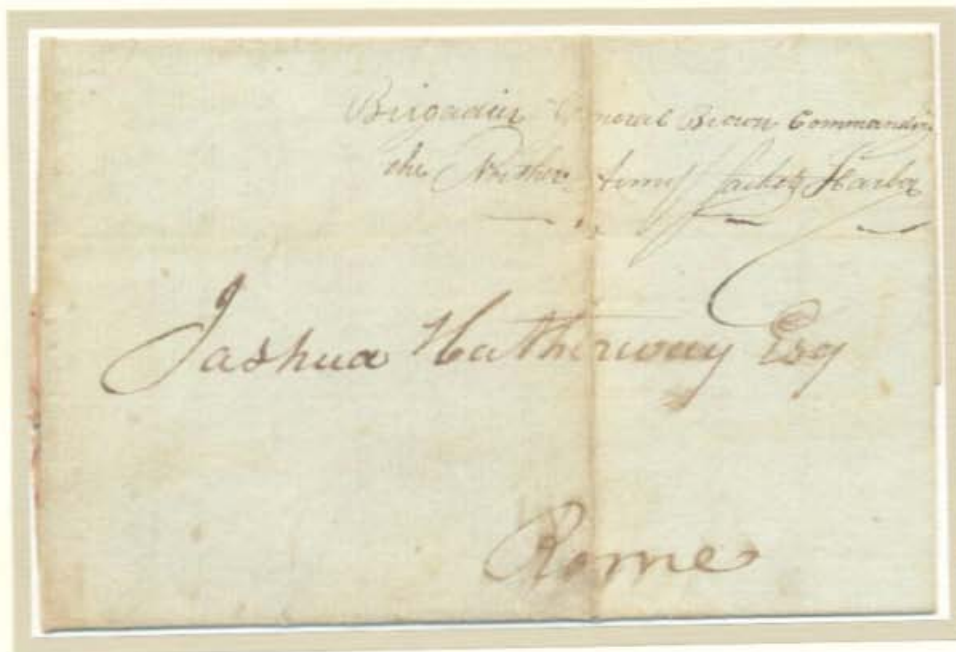 Brigadier General Brown Commanding
the Northern Army Sackets Harbor
Jashua Hatherway Esq
Rome